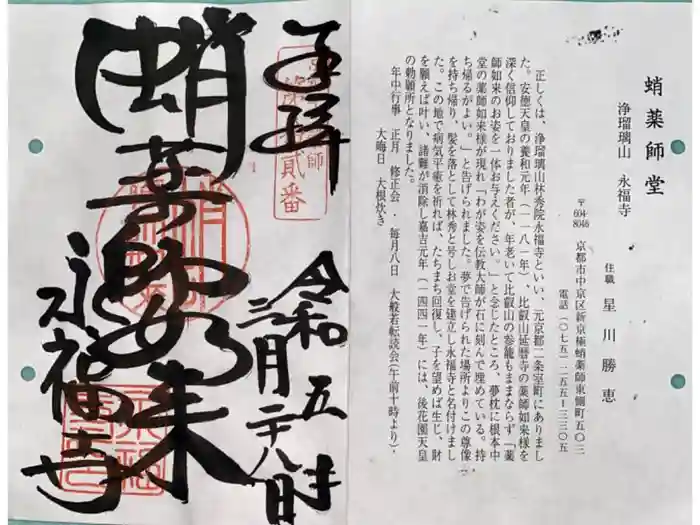 蛸薬師堂
浄瑠璃山 永福寺
住職 星川勝恵
〒604-8046 京都市中京区新京極蛸薬師東側町五〇三
電話(〇七五)二五五―三三〇五
正しくは、浄瑠璃山林秀院永福寺といい、元京都二条室町にありまし
た。安徳天皇の養和元年(一一八一年)、比叡山延暦寺の薬師如来様を
深く信仰しておりました者が、年老いて比叡山の参籠もままならず「薬
師如来のお姿を一体お与えください。」と念じたところ、夢枕に根本中
堂の薬師如来様が現れ「わが姿を伝教大師が石に刻んで埋めている。持
ち帰るがよい。」と告げられました。夢で告げられた場所よりこの尊像
を持ち帰り、髪を落として林秀と号しお堂を建立し永福寺と名付けまし
た。この地で病気平癒を祈れば、たちまち回復し、子を望めば生じ、財
を願えば叶い、諸難が消除し嘉吉元年(一四四一年)には、後花園天皇
の勅願所となりました。
年中行事 正月 修正会・毎月八日 大般若転読会(午前十時より)、
大晦日 大根焚き
奉拝
第貳番
令和五年
三月二十八日
蛸薬師如来
永福寺